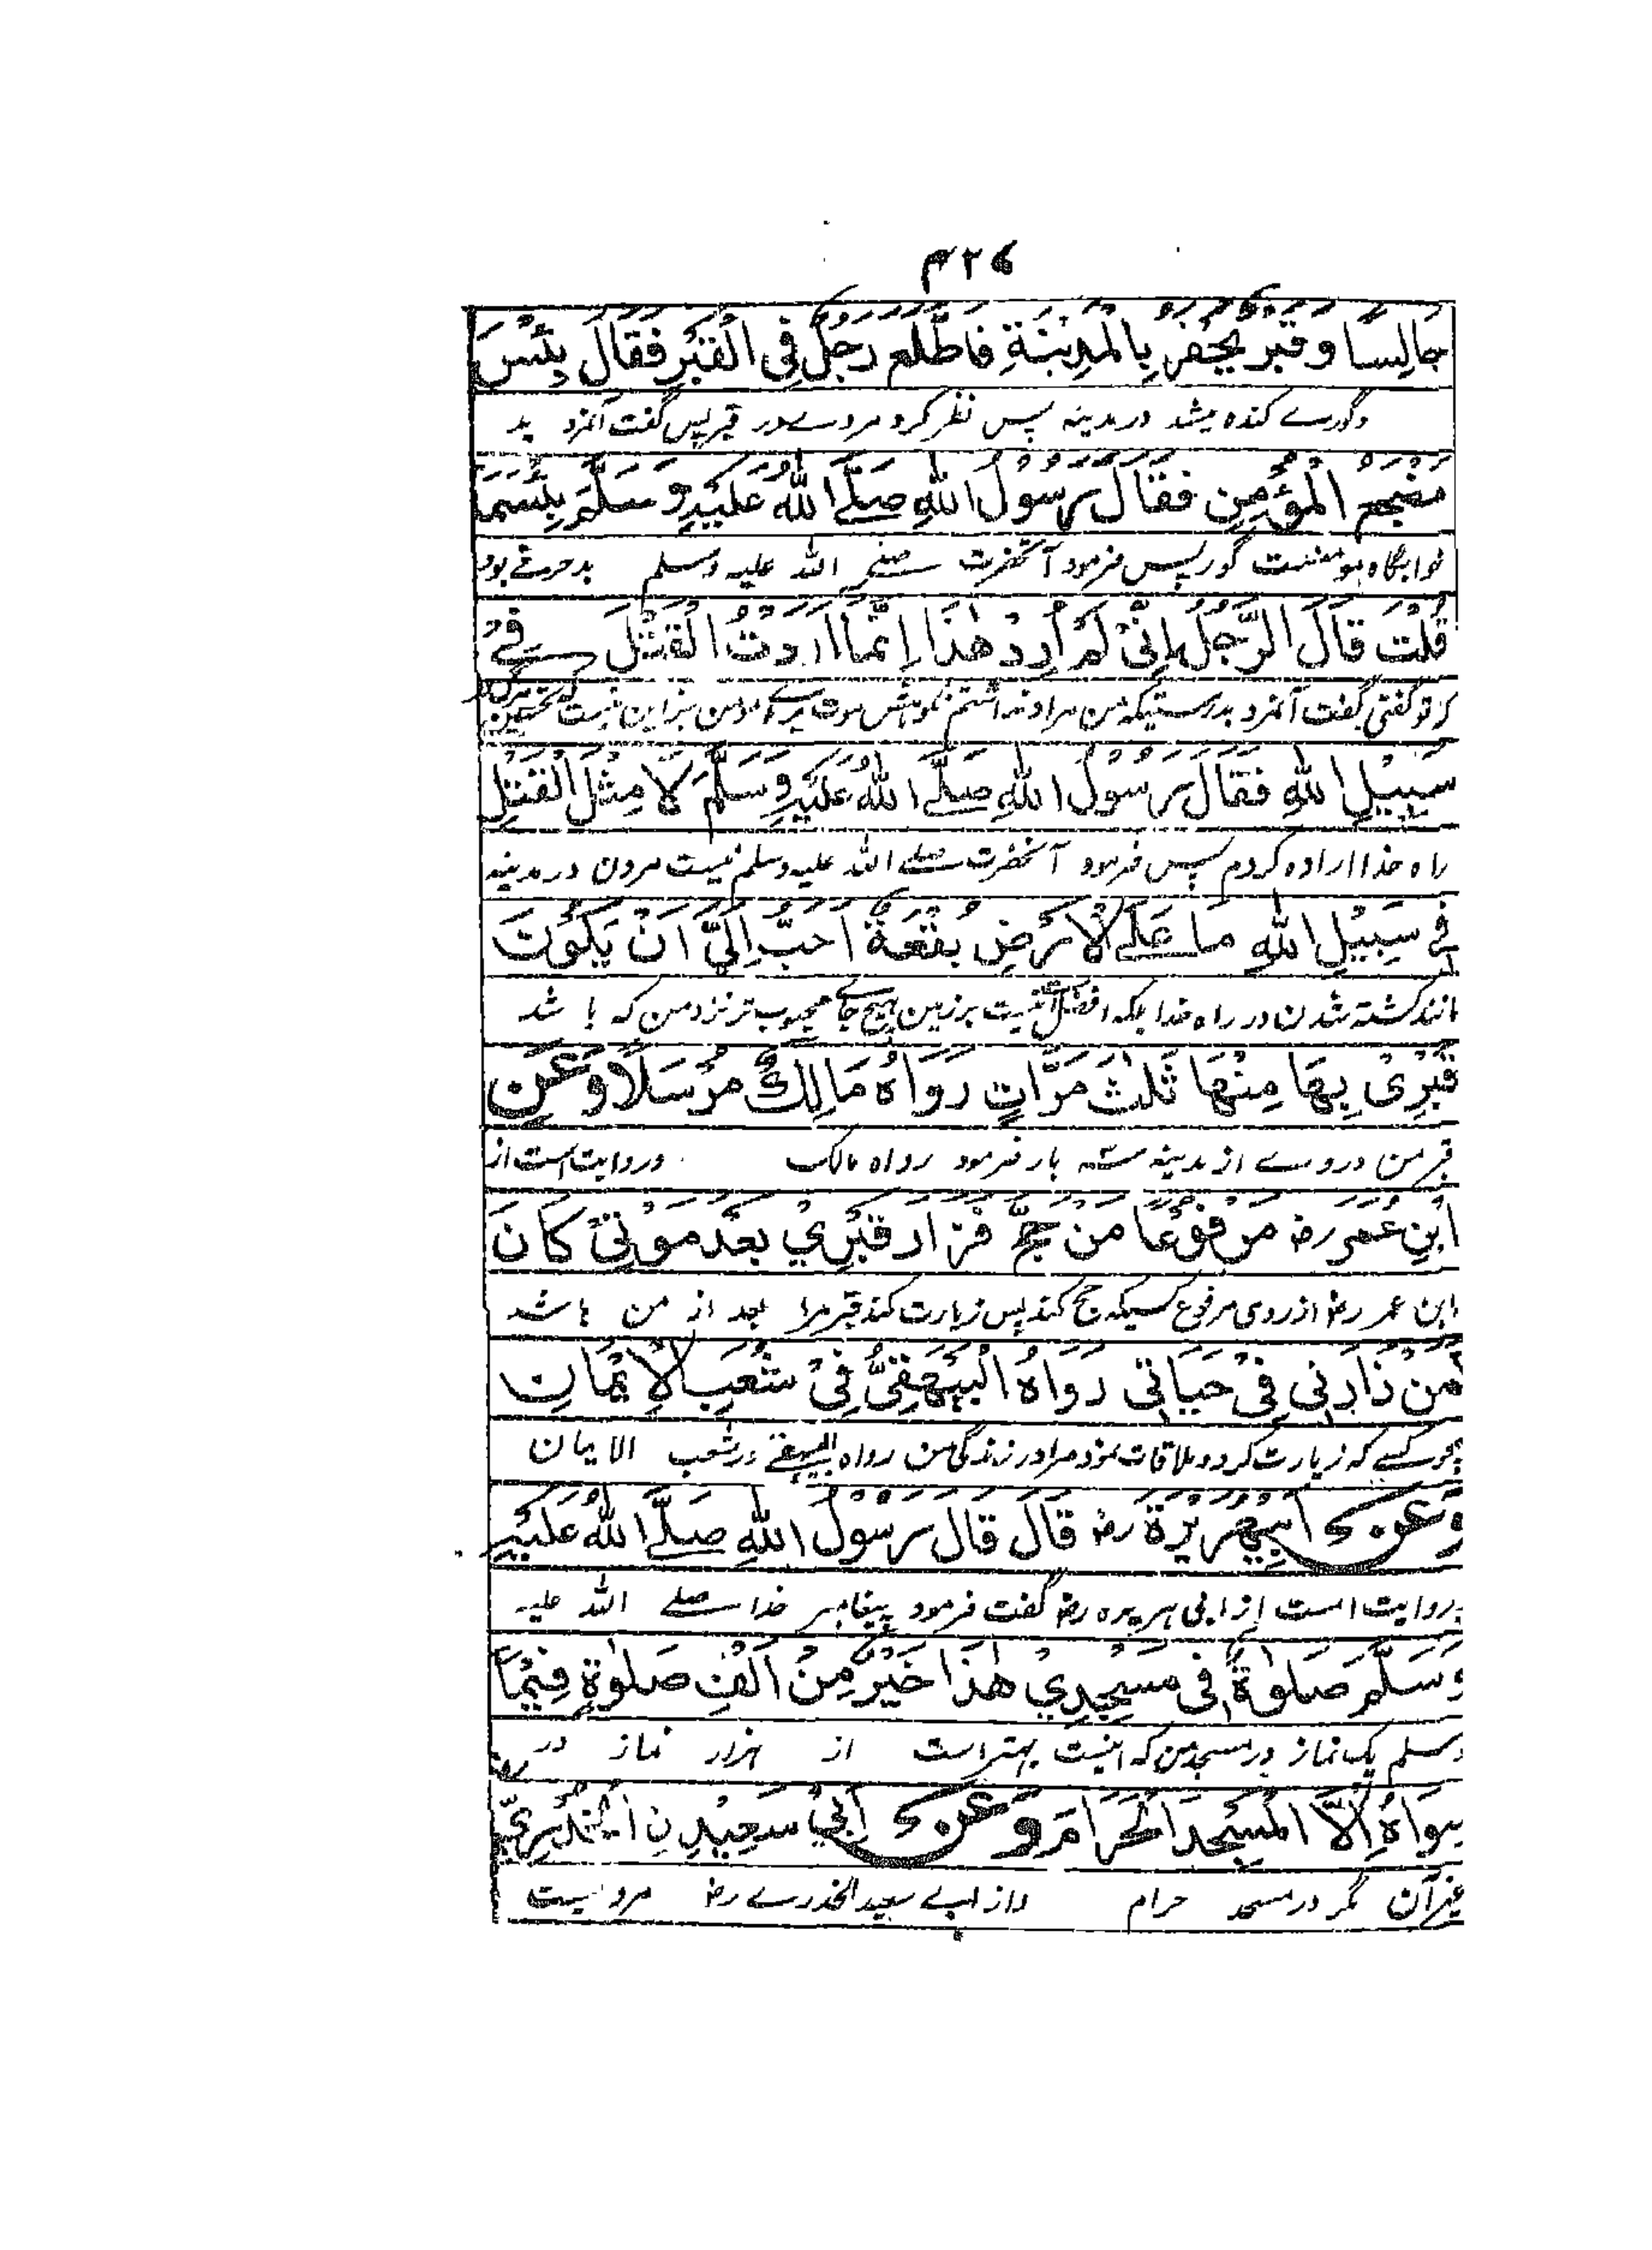 ۴۲۶
جَالِسًا وَقَبْرٌ يُحْفَرُ بِالْمَدِيْنَةِ فَاطَّلَعَ رَجُلٌ فِي الْقَبْرِ فَقَالَ بِئْسَ
وگورے کنده میشد در مدینه پس نظر کرد مردے در قبر پس گفت آنمرد بد
مَضْجَعُ الْمُؤْمِنِ فَقَالَ رَسُوْلُ اللهِ صَلَّے اللهُ عَلَيْهِ وَسَلَّمَ بِئْسَمَا
خوابگاه مومنست گور پس فرمود آنحضرت صلے الله علیه وسلم بد حرفے بود
قُلْتَ قَالَ الرَّجُلُ اِنِّيْ لَمْ اُرِدْ هٰذَا اِنَّمَا اَرَدْتُ الْقَتْلَ فِيْ
که تو گفتی گفت آنمرد بدرستیکه من مراد نداشتم نکوهش موت برائے مومن بزاین نیست که
سَبِيْلِ اللهِ فَقَالَ رَسُوْلُ اللهِ صَلَّے اللهُ عَلَيْهِ وَسَلَّمَ لَا مِثْلَ الْقَتْلِ
راه خدا اراده کردم پس فرمود آنحضرت صلے الله علیه وسلم نیست مردن در مدینه
فِي سَبِيْلِ اللهِ مَا عَلَے الْاَرْضِ بُقْعَةٌ اَحَبُّ اِلَيَّ اَنْ يَكُوْنَ
مانند کشته شدن در راه خدا بلکه افضل نیست بر زمین هیچ جائے محبوب تر نزد من که باشد
قَبْرِيْ بِهَا مِنْهَا ثَلٰثَ مَرَّاتٍ رَوَاهُ مَالِكٌ مُرْسَلًا وَعَنِ
قبر من دروے از مدینه سه بار فرمود رواه مالک وروایت است از
ابْنِ عُمَرَ رض مَرْفُوْعًا مَنْ حَجَّ فَزَارَ قَبْرِيْ بَعْدَ مَوْتِيْ كَانَ
ابن عمر رض از روی مرفوع کسیکه حج کند پس زیارت کند قبر مرا بعد از من باشد
كَمَنْ زَارَنِي فِيْ حَيَاتِي رَوَاهُ الْبَيْهَقِيُّ فِيْ شُعَبِ الْاِيْمَانِ
همچو کسے که زیارت کرد و ملاقات نمود مرا در زندگی من رواه البیهقے در شعب الایمان
وَعَنْ اَبِيْ هُرَيْرَةَ رض قَالَ قَالَ رَسُوْلُ اللهِ صَلَّے اللهُ عَلَيْهِ
وروایت است از ابی هریره رض گفت فرمود پیغامبر خدا صلے الله علیه
وَسَلَّمَ صَلٰوةٌ فِي مَسْجِدِيْ هٰذَا خَيْرٌ مِنْ اَلْفِ صَلٰوةٍ فِيْمَا
وسلم یک نماز در مسجد من که اینست بهتر است از هزار نماز در
سِوَاهُ اِلَّا الْمَسْجِدَ الْحَرَامَ وَعَنْ اَبِيْ سَعِيْدِنِ الْخُدْرِيِّ
غیر آن مگر در مسجد حرام واز ابے سعید الخدرے رض مرویست